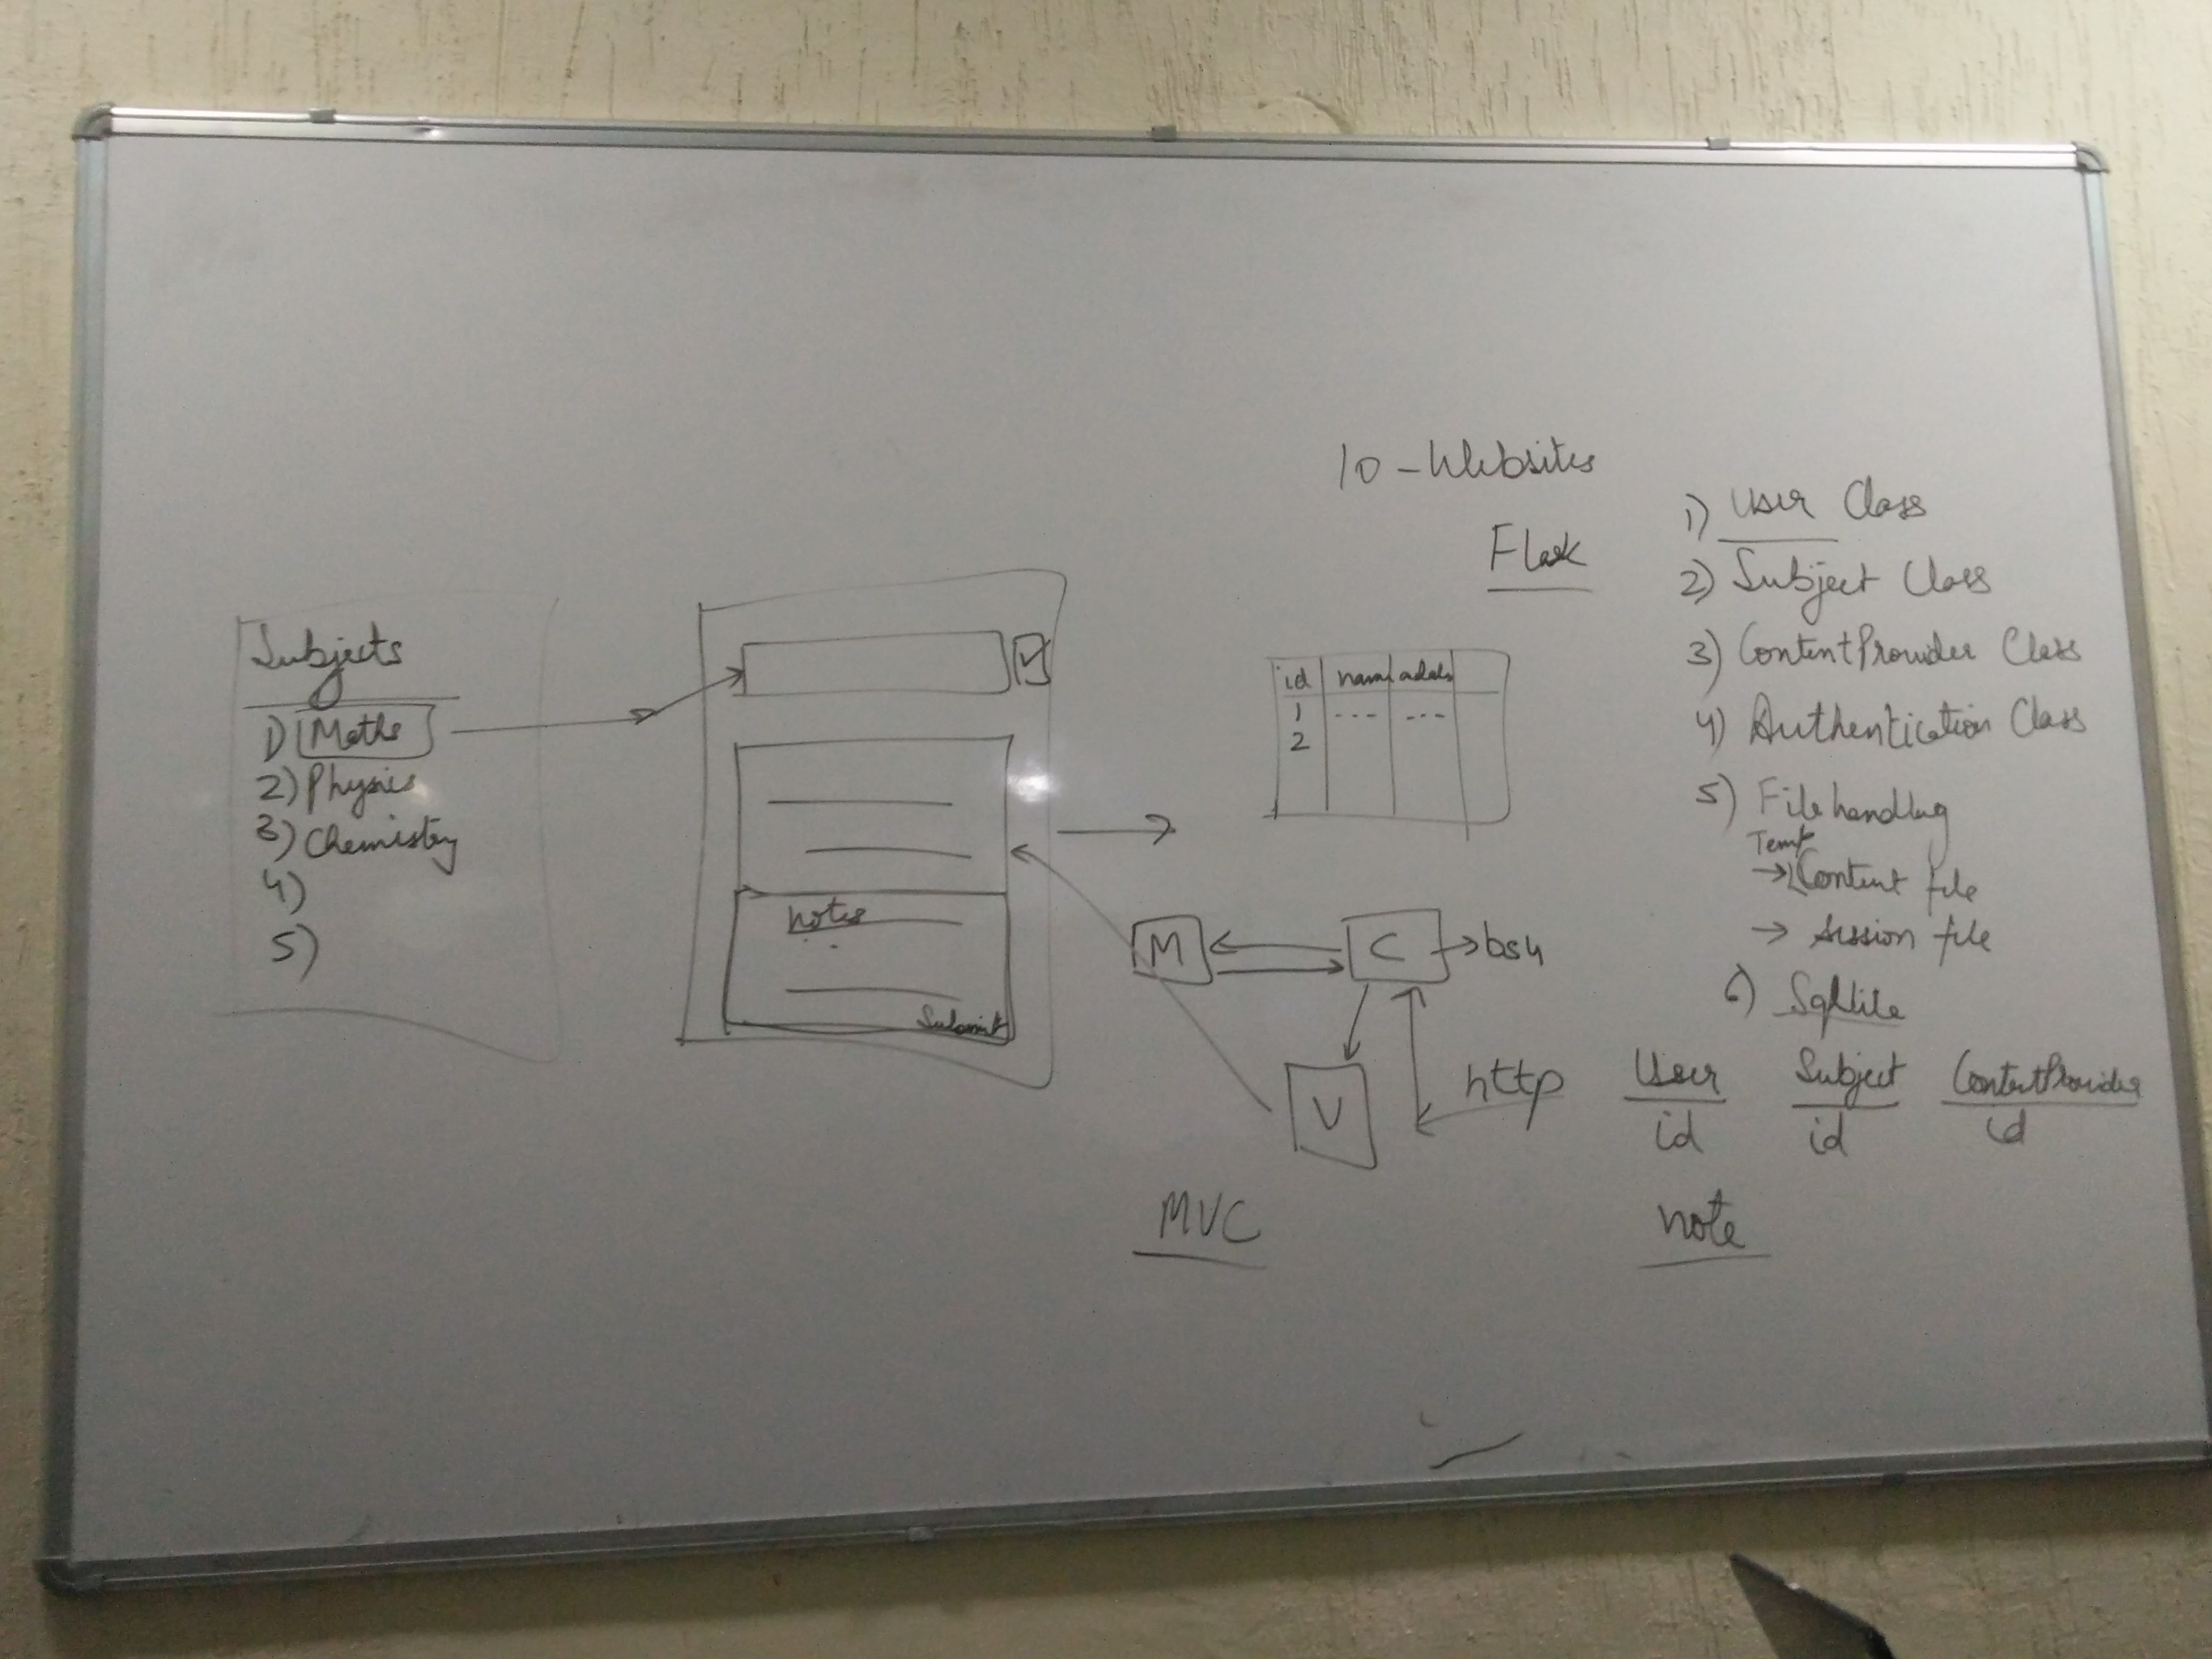 Subjects
1) Maths
2) Physics
3) Chemistry
4)
5)
notes
Submit
10 - Websites
Flask
id name
1 --- ---
2
M C → bs4
V
http
MVC
1) User Class
2) Subject Class
3) ContentProvider Class
4) Authentication Class
5) File handlug
Temp
→ Content file
→ session file
6) Sqllite
User Subject ContentProvider
id id id
note